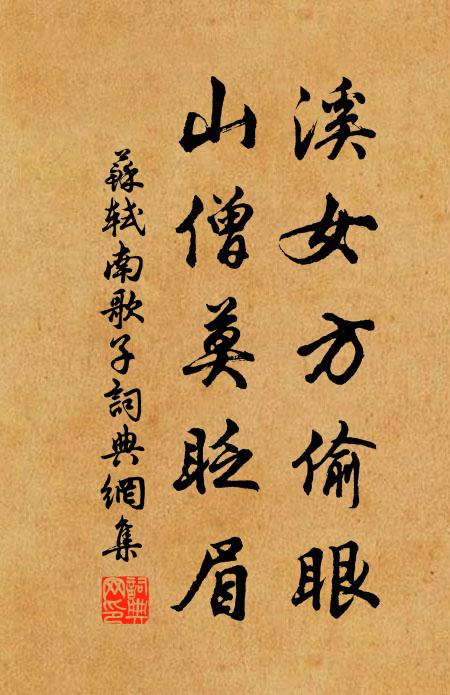 溪女方偷眼
山僧莫眨眉
蘇軾南歌子詞典網集
詞典
网印